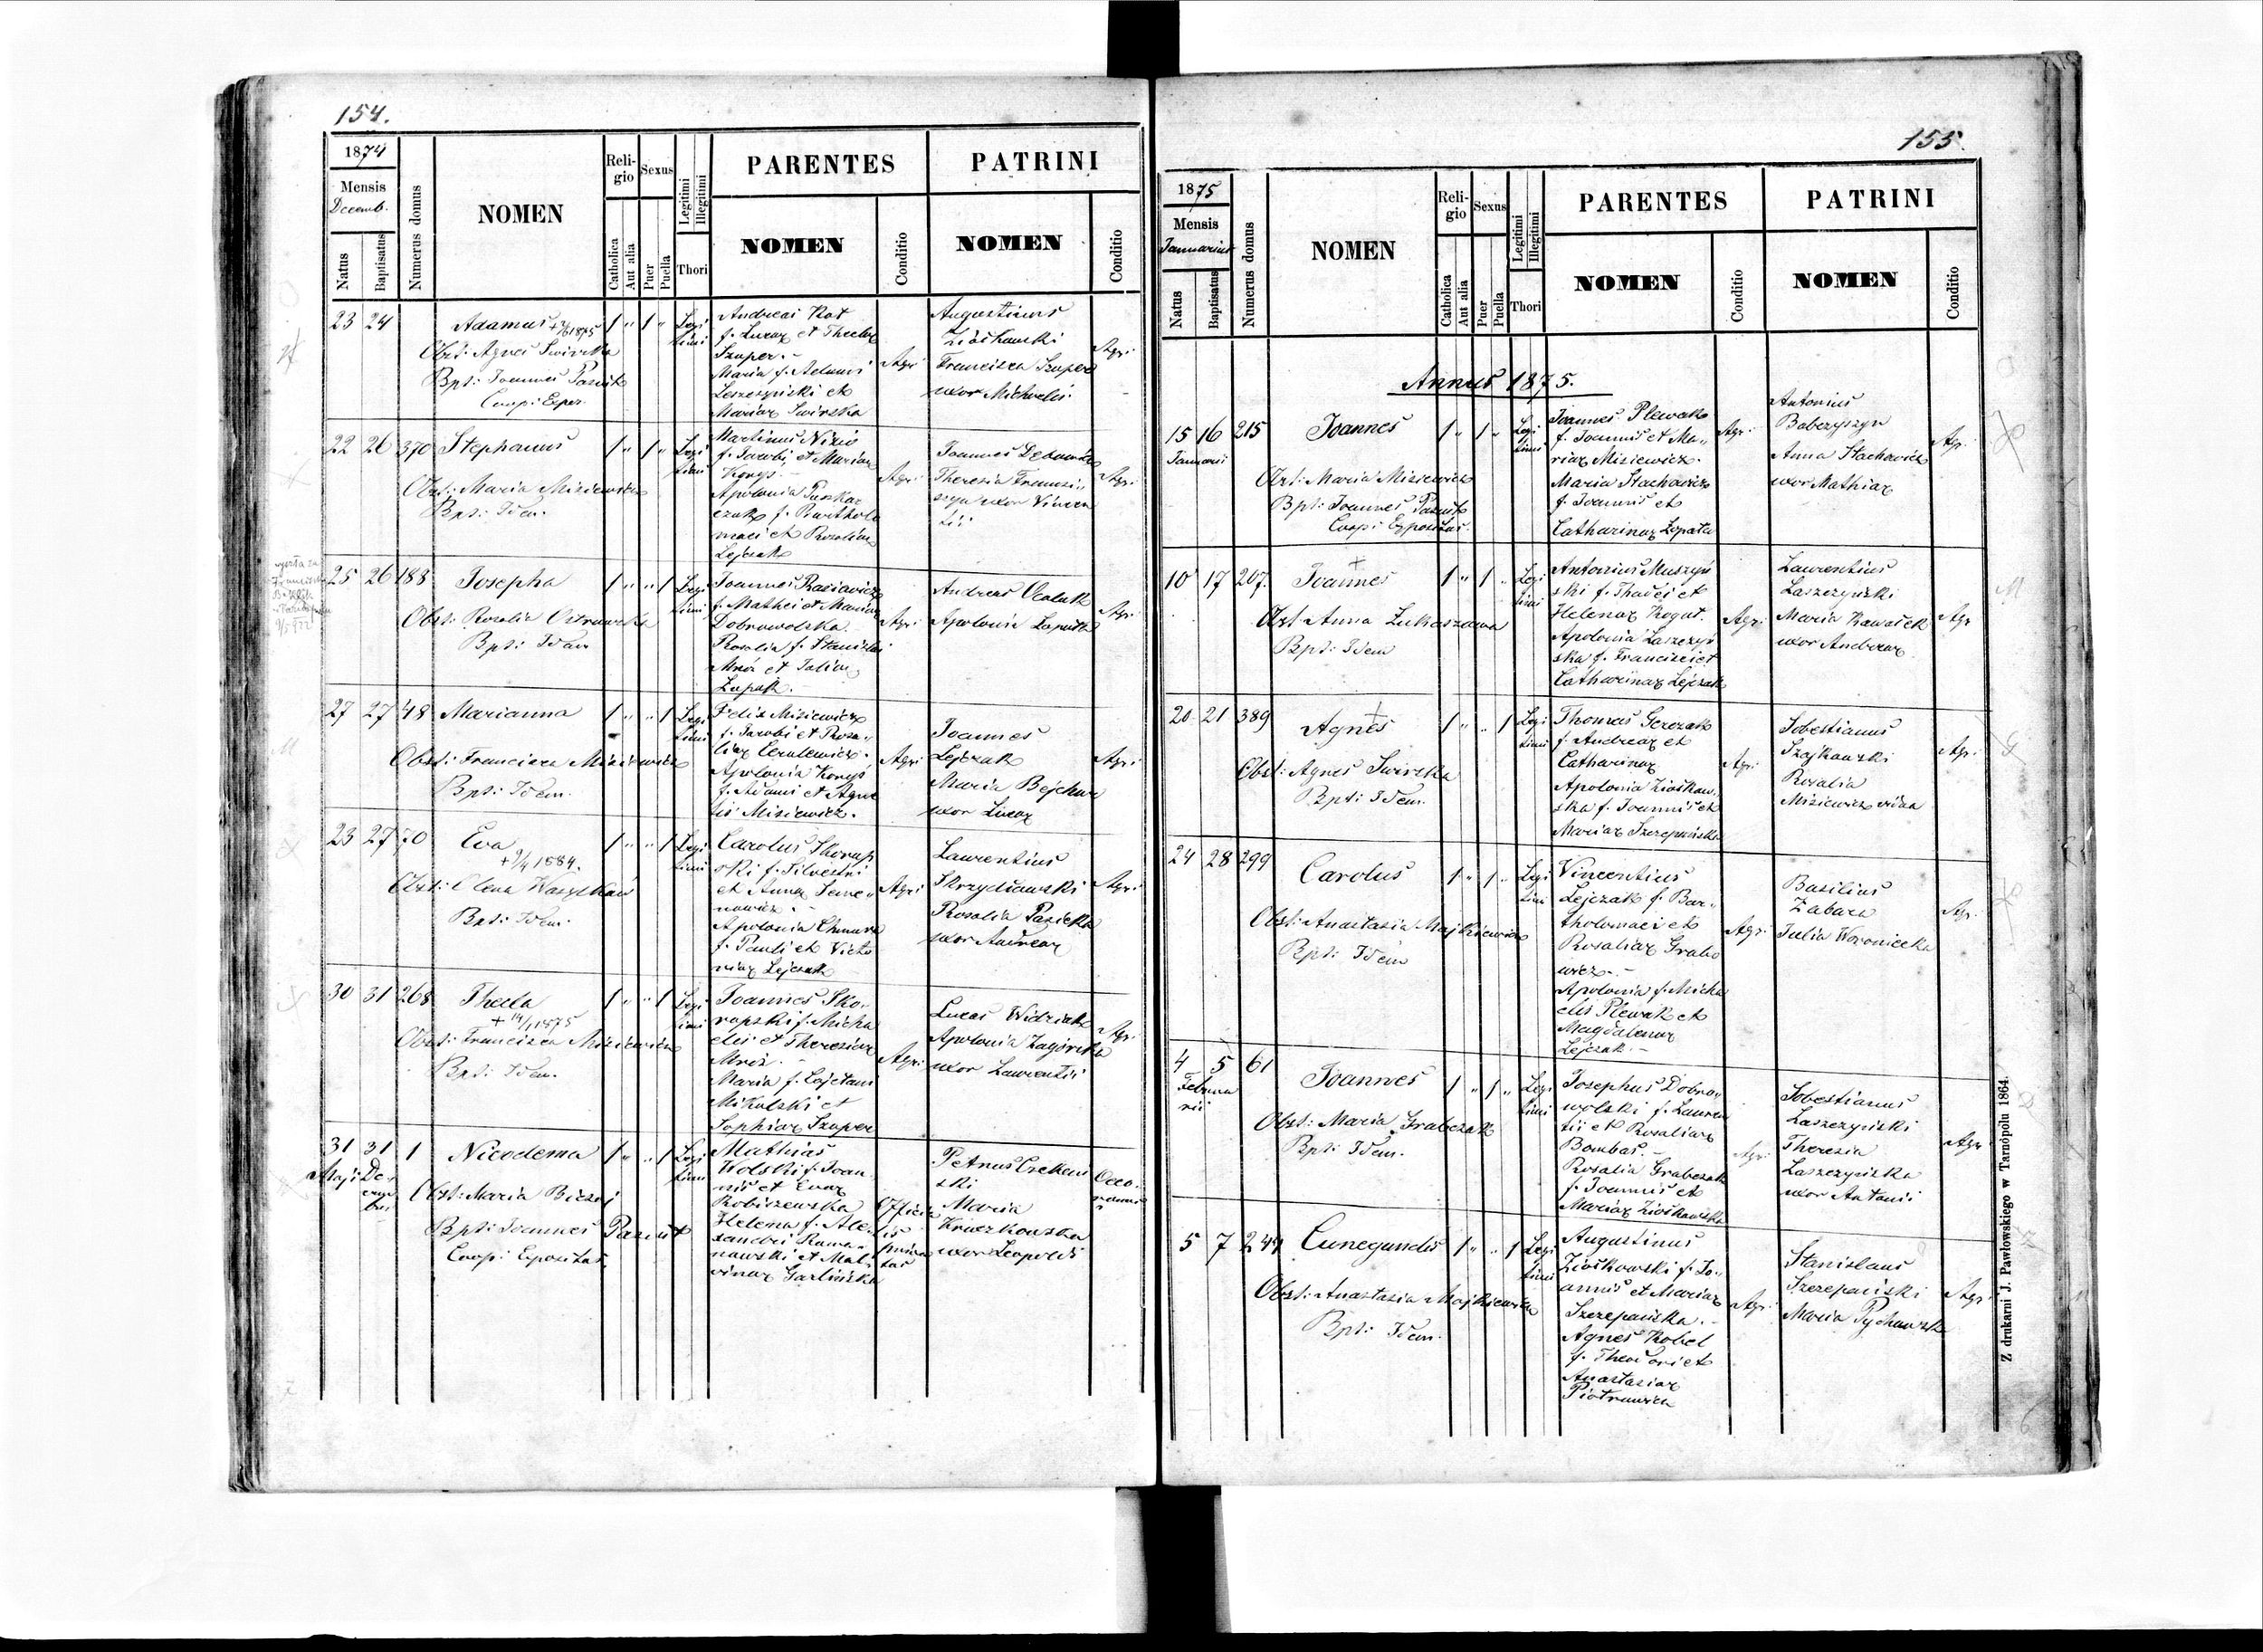 154.
1874
Mensis
Decemb.
Natus
Baptisatus
Numerus domus
NOMEN
Reli-
gio
Catholica
Aut alia
Sexus
Puer
Puella
Legitimi
Illegitimi
Thori
PARENTES
NOMEN
Conditio
PATRINI
NOMEN
Conditio
23 24
Adamus
Obst: Agnes Swirska
Bpt: Joannes
Coop: Expos.
1 " 1 "
Legi
timi
Andreas Kot
f. Lucae et Theclae
Szuper.-
Maria f. Adami
Leszczyński et
Mariae Swirska
Agri
Augustinus
Ziółkowski
Francisca Szuper
uxor Michaelis
Agri
22 26 370 Stephanus
Obst: Maria Misiewicz
Bpt: Idem.
1 " 1 "
Legi
timi
Martinus Niziő
f. Jacobi et Mariae
Koryś.
Apolonia Puszkar
czuk f. Barthole
maei et Rosaliae
Lejczak
Agri
Joannes
Theresia Franczi-
szyn uxor Vincen
tii
Agri
25 26 188 Josepha
Obst: Rosalia Ostrowska
Bpt: Idem
1 " " 1
Legi
timi
Joannes Basiewicz
f. Mathei et Mariae
Dobrowolska.-
Rosalia f. Stanislai
Mróz et Juliae
Łapak.-
Agri
Andreas
Apolonia
Agri
27 27 48 Marianna
Obst: Francisca Misiewicz
Bpt: Idem.
1 " " 1
Legi
timi
Felix Misiewicz
f. Jacobi et Rosa-
liae
Apolonia Korys
f. Adami et Agne
tis Misiewicz.
Agri
Joannes
Lejczak
Maria Bejchur
uxor Lucae
Agri
23 27 70 Eva
+ 9/4 1884.
Obst: Olena Wasylkow
Bpt: Idem.
1 " " 1
Legi
timi
Carolus Skorup
ski f. Silvestri
et Annae Seme-
nowicz.-
Apolonia Chmura
f. Pauli et Victo
riae Lejczak
Agri
Laurentius
Skrzydłowski
Rosalia Pasicka
uxor Andreae
Agri
30 31 268 Thecla
+ 14/1 1875
Obst: Francisca Misiewicz
Bpt: Idem.
1 " " 1
Legi
timi
Joannes Sko-
rupski f. Micha
elis et Theresiae
Mróz.-
Maria f. Cajetani
Mikulski et
Sophiae Szuper
Agri
Lucas Widziak
Apolonia Zagórska
uxor Laurentii
Agri
31 31 1 Nicodema
Maji De-
cem
bri
Obst: Maria
Bpt: Joannes
Coop: Expositus
1 " " 1
Legi
timi
Mathias
Wolski f. Joan
nis et Evae
Robiszewska
Helena f. Ale-
xandri Roma-
nowski et Mal-
vinae Garlińska
Petrus Czekan
ski
Maria
Kruczkowska
uxor Leopoldi
Oeco-
nomus
155.
1875
Mensis
Januarius
Natus
Baptisatus
Numerus domus
NOMEN
Reli-
gio
Catholica
Aut alia
Sexus
Puer
Puella
Legitimi
Illegitimi
Thori
PARENTES
NOMEN
Conditio
PATRINI
NOMEN
Conditio
Annus 1875.
15 16 215 Joannes
Januarii
Obst: Maria Misiewicz
Bpt: Joannes
Coop: Expositus.
1 " 1 "
Legi
timi
Joannes Plewak
f. Joannis et Ma-
riae Misiewicz.
Maria Stachowicz
f. Joannis et
Catharinae Łopata
Agri
Antonius
Babczyszyn
Anna Stachowicz
uxor Mathiae
Agr.
10 17 207. Joannes
Obst: Anna Łukaszowa
Bpt: Idem
1 " 1 "
Legi
timi
Antonius Muszyń
ski f. Thadei et
Helenae Kogut.
Apolonia Laszczyń
ska f. Francisci et
Catharinae Lejczak
Agri
Laurentius
Laszczyński
Maria Kawałek
uxor Andreae
Agr
20 21 389 Agnes
Obst: Agnes Swirska
Bpt: Idem.
1 " " 1
Legi
timi
Thomas Gerczak
f. Andreae et
Catharinae
Apolonia Ziółkow-
ska f. Joannis et
Mariae Szczepańska
Agri
Sobestianus
Szajkowski
Rosalia
Misiewicz vidua
Agri
24 28 299 Carolus
Obst: Anastasia Majkiewicz
Bpt: Idem
1 " 1 "
Legi
timi
Vincentius
Lejczak f. Bar-
tholomaei et
Rosaliae Grabo
wicz.-
Apolonia f. Micha
elis Plewak et
Magdalenae
Lejczak.-
Agri
Basilius
Zabara
Julia Woronicka
Agr.
4 5 61 Joannes
Februa
rii
Obst: Maria Grabczak
Bpt: Idem.
1 " 1 "
Legi
timi
Josephus Dobro-
wolski f. Lauren
tii et Rosaliae
Bombas.-
Rosalia Grabczak
f. Joannis et
Mariae Ziółkowska
Agri
Sobestianus
Laszczyński
Theresia
Laszczyńska
uxor Antonii
Agr
5 7 244 Cunegundis
Obst: Anastasia Majkiewicz
Bpt: Idem.
1 " " 1
Legi
timi
Augustinus
Ziółkowski f. Jo-
annis et Mariae
Szczepańska.-
Agnes Kobel
f. Theodori et
Anastasiae
Piotrowicz
Agri
Stanislaus
Szczepański
Maria Pychowska
Agr
Z drukarni J. Pawłowskiego w Tarnopolu 1864.